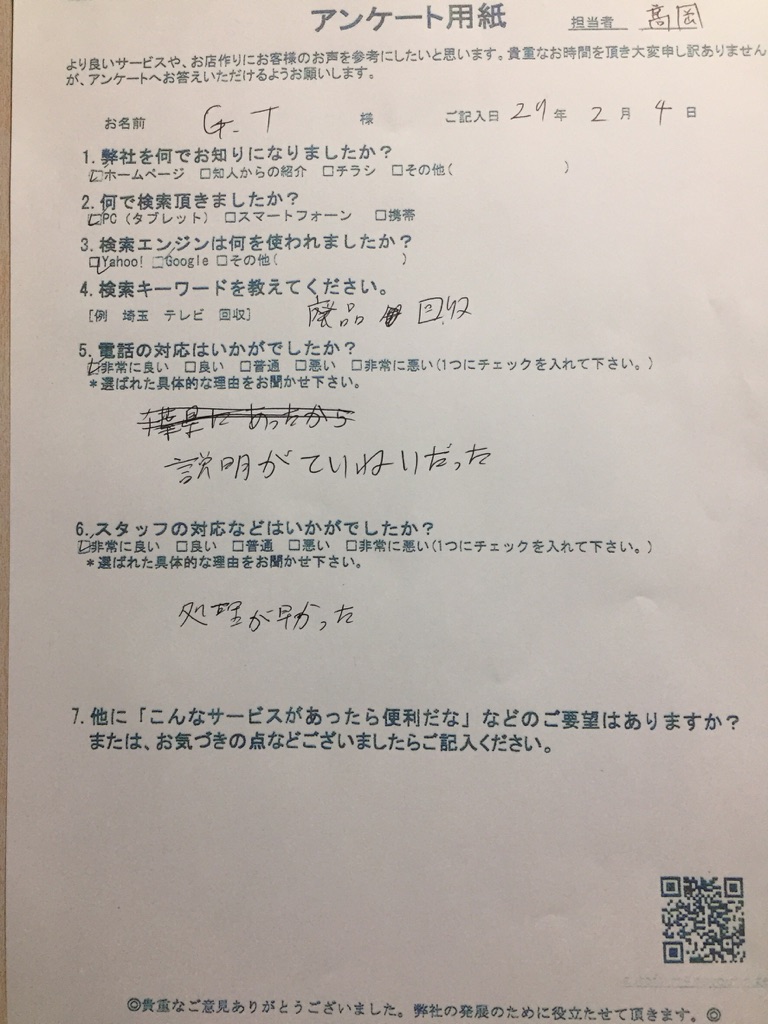 アンケート用紙 担当者 高岡
より良いサービスや、お店作りにお客様のお声を参考にしたいと思います。貴重なお時間を頂き大変申し訳ありません
が、アンケートへお答えいただけるようお願いします。
お名前 G.T 様 ご記入日 29年 2月 4日
1.弊社を何でお知りになりましたか？
☑ホームページ □知人からの紹介 □チラシ □その他( )
2.何で検索頂きましたか？
☑PC（タブレット） □スマートフォーン □携帯
3.検索エンジンは何を使われましたか？
☑Yahoo! □Google □その他( )
4.検索キーワードを教えてください。
[例 埼玉 テレビ 回収] 廃品 回収
5.電話の対応はいかがでしたか？
☑非常に良い □良い □普通 □悪い □非常に悪い(1つにチェックを入れて下さい。)
＊選ばれた具体的な理由をお聞かせ下さい。
にあったから
説明がていねいだった
6.スタッフの対応などはいかがでしたか？
☑非常に良い □良い □普通 □悪い □非常に悪い(1つにチェックを入れて下さい。)
＊選ばれた具体的な理由をお聞かせ下さい。
処理が早かった
7.他に「こんなサービスがあったら便利だな」などのご要望はありますか？
または、お気づきの点などございましたらご記入ください。
◎貴重なご意見ありがとうございました。弊社の発展のために役立たせて頂きます。◎